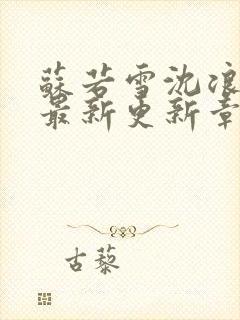 蘇若雪沈浪
最新更新章
古藜